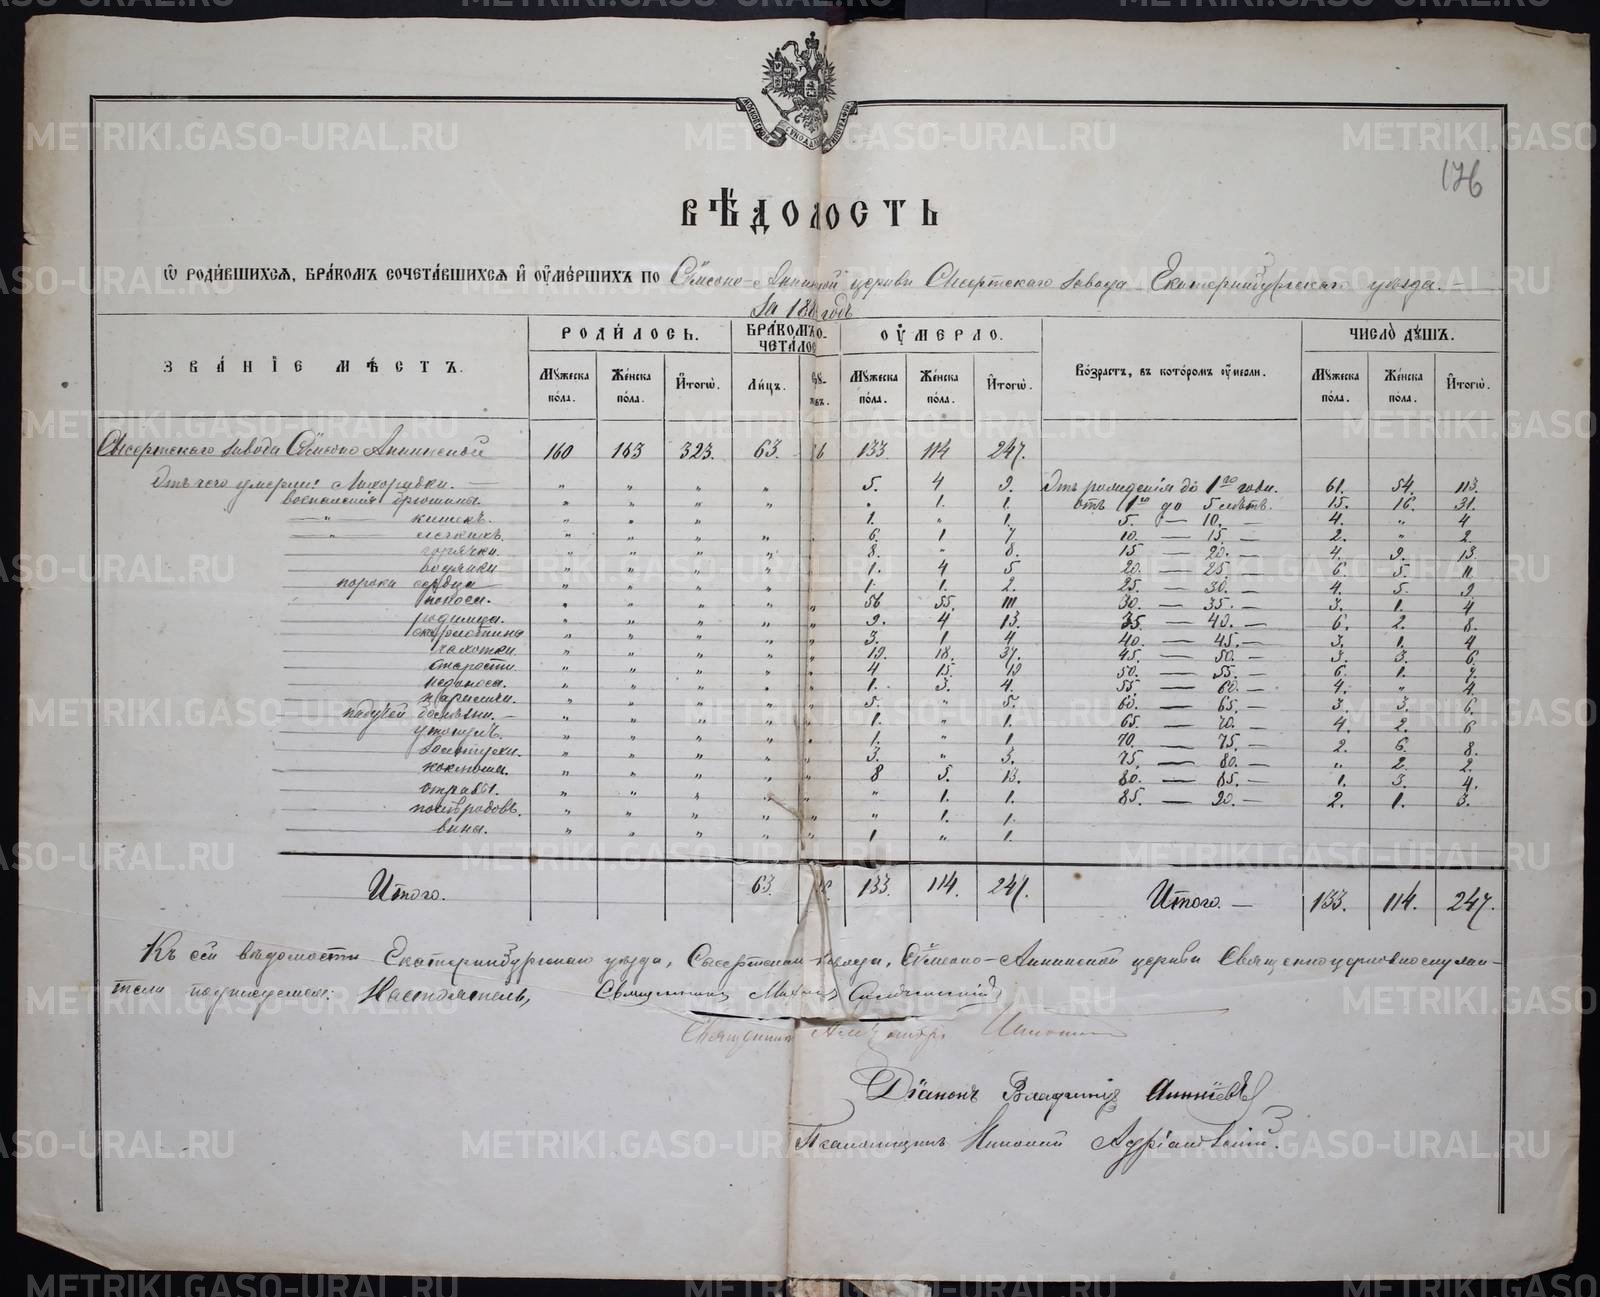 176
ВѢДОМОСТЬ
Ѡ РОДИ́ВШИХСѦ, БРА́КОМЪ СОЧЕТА́ВШИХСѦ И҆ ОУ҆МЕ́РШИХЪ ПО Сѵмеоно-Аннинской церкви Сысертскаго завода Екатеринбургскаго уѣзда.
За 188 годъ
ЗВА́НІЕ МѢСТЪ.
РОДИ́ЛОСЬ.
БРА́КОМЪ СОЧЕТАЛОСЬ
ОУ҆МЕРЛО.
Во́зрастъ, въ кото́ромъ ᲂу҆́мерли.
ЧИСЛО̀ ДꙊ́ШЪ.
Мꙋ́жеска по́ла. Же́нска по́ла. И҆тогѡ̀. Ли́цъ. Мꙋ́жеска по́ла. Же́нска по́ла. И҆тогѡ̀. Мꙋ́жеска по́ла. Же́нска по́ла. И҆тогѡ̀.
Сысертскаго завода Сѵмеоно Аннинской 160 163 323. 63. 133. 114 247.
Отъ чего умерли: Лихорадки. — „ „ „ „ 5. 4 9. Отъ рожденія до 1го года. 61. 54. 113.
воспаленія брюшины. „ „ „ „ „ 1. 1. отъ 1го до 5 лѣтъ. 15. 16. 31.
— „ — кишекъ. „ „ „ „ 1. „ 1. 5. — 10. — 4. „ 4
— „ — легкихъ. „ „ „ „ 6. 1 7 10 — 15. — 2. „ 2.
горячки. „ „ „ „ 8. „ 8. 15 — 20. — 4. 9. 13.
водянки „ „ „ „ 1. 4 5 20. — 25 — 6. 5. 11.
порока сердца „ „ „ „ 1. 1. 2. 25. — 30. — 4. 5. 9.
поноса. „ „ „ „ „ 56 55. 111 30. — 35. — 3. 1. 4
родимца. „ „ „ „ „ 9. 4 13. 35 — 40. — 6. 2. 8.
скарлатина „ „ „ „ „ 3. 1 4 40. — 45. — 3. 1. 4
чахотки. „ „ „ „ „ 19. 18. 37. 45. — 50. — 3. 3. 6.
старости. „ „ „ „ „ 4 15. 19 50. — 55. — 6. 1. 7.
недоноса. „ „ „ „ „ 1. 3. 4. 55 — 60. — 4. „ 4.
„ „ „ „ „ 5. „ 5. 60. — 65. — 3. 3. 6.
падучей болѣзни. — „ „ „ „ „ 1. „ 1. 65 — 70. — 4. 2. 6
утонулъ. „ „ „ „ „ 1. „ 1 70. — 75. — 2. 6. 8.
золотухи. „ „ „ „ „ 3. „ 3. 75. — 80. — „ 2. 2.
коклюша. „ „ „ „ „ 8 5. 13. 80. — 85. — 1. 3. 4.
отравы. „ „ „ „ „ „ 1. 1. 85. — 90. — 2. 1. 3.
послѣродовъ. „ „ „ „ „ „ 1. 1.
вина. „ „ „ „ „ 1 „ 1.
Итого. 63. 133. 114. 247. Итого. — 133. 114. 247.
Къ сей вѣдомости Екатеринбургскаго уѣзда, Сысертскаго завода, Сѵмеоно-Аннинской церкви Священноцерковнослужи-
тели подписуемся: Настоятель, Священникъ
Священникъ Александръ
Діаконъ Владиміръ
Псаломщикъ Николай Адріановскій.
METRIKI.GASO-URAL.RU